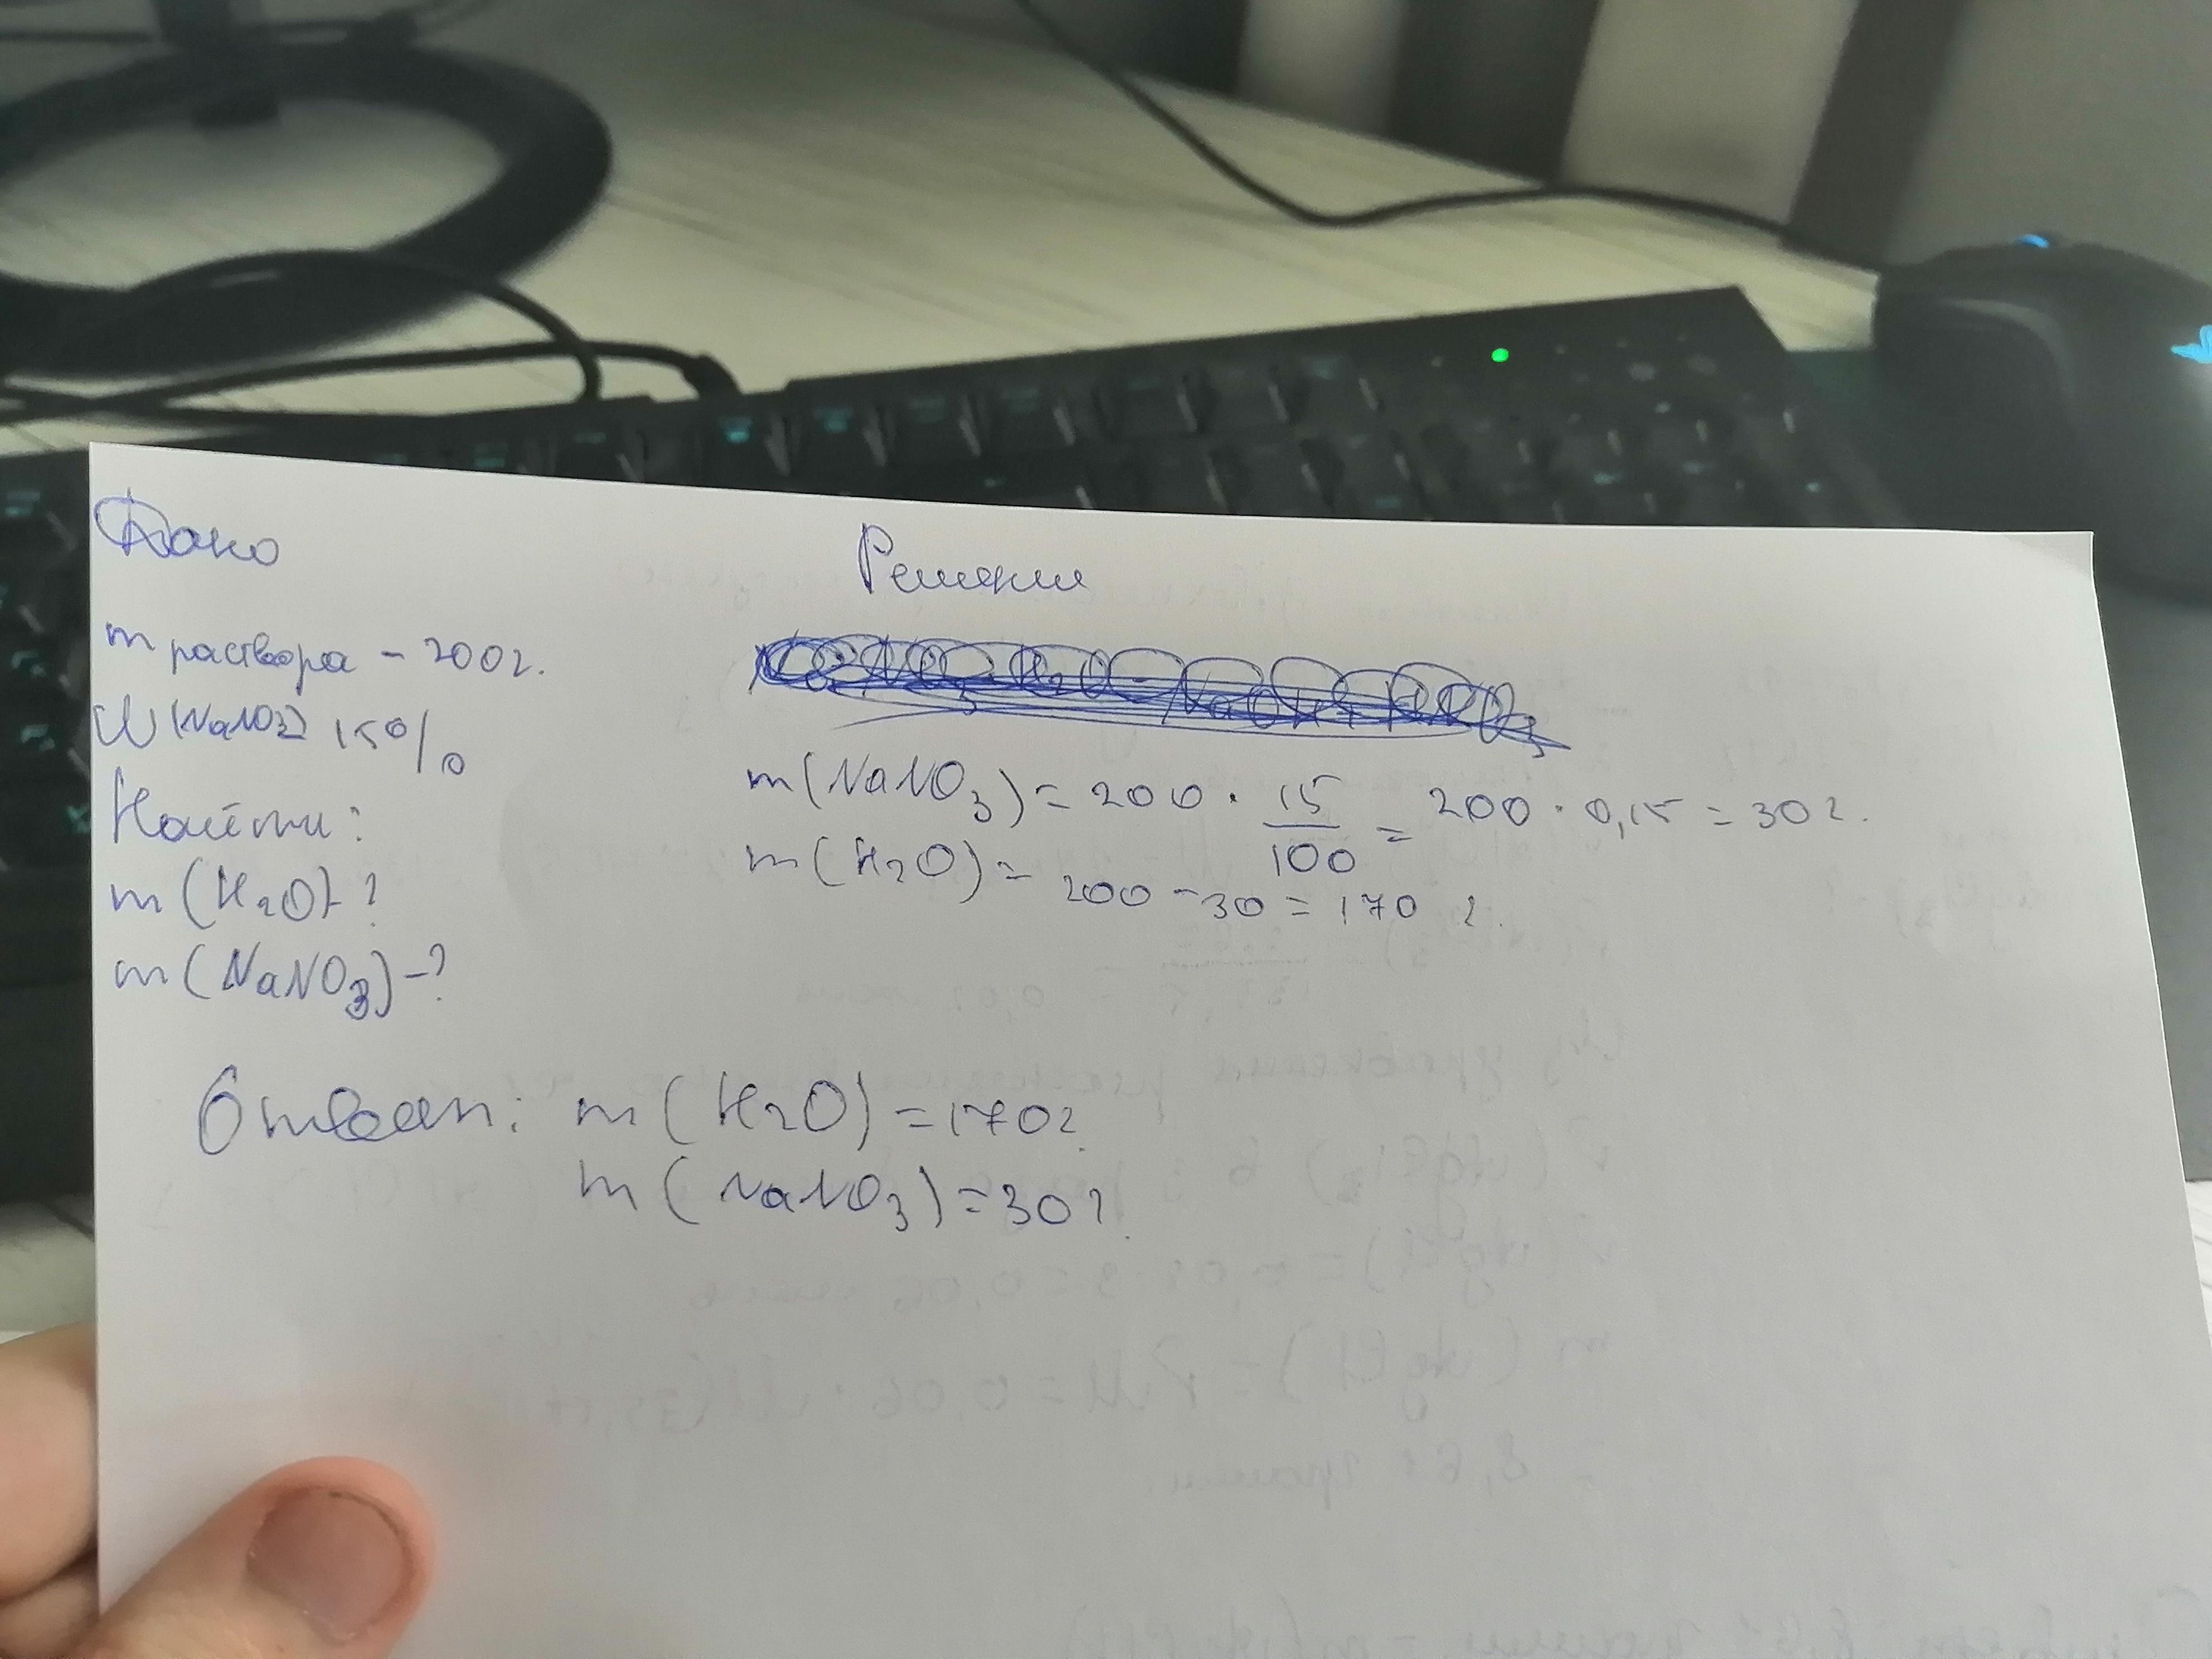 Дано
Решение
m раствора - 200г.
W(NaNO3) 15%
Найти:
m(H2O)-?
m(NaNO3)-?
m(NaNO3) = 200 · 15/100 = 200 · 0,15 = 30г.
m(H2O) = 200 - 30 = 170 г.
Ответ: m(H2O) = 170г.
m(NaNO3) = 30г.